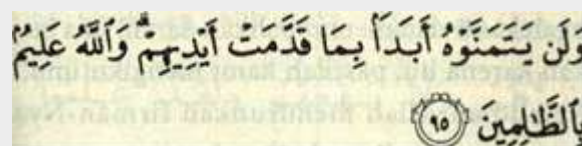 وَلَن يَتَمَنَّوْهُ أَبَدًا بِمَا قَدَّمَتْ أَيْدِيهِمْ ۗ وَاللَّهُ عَلِيمٌ
بِالظَّالِمِينَ ﴿٩٥﴾